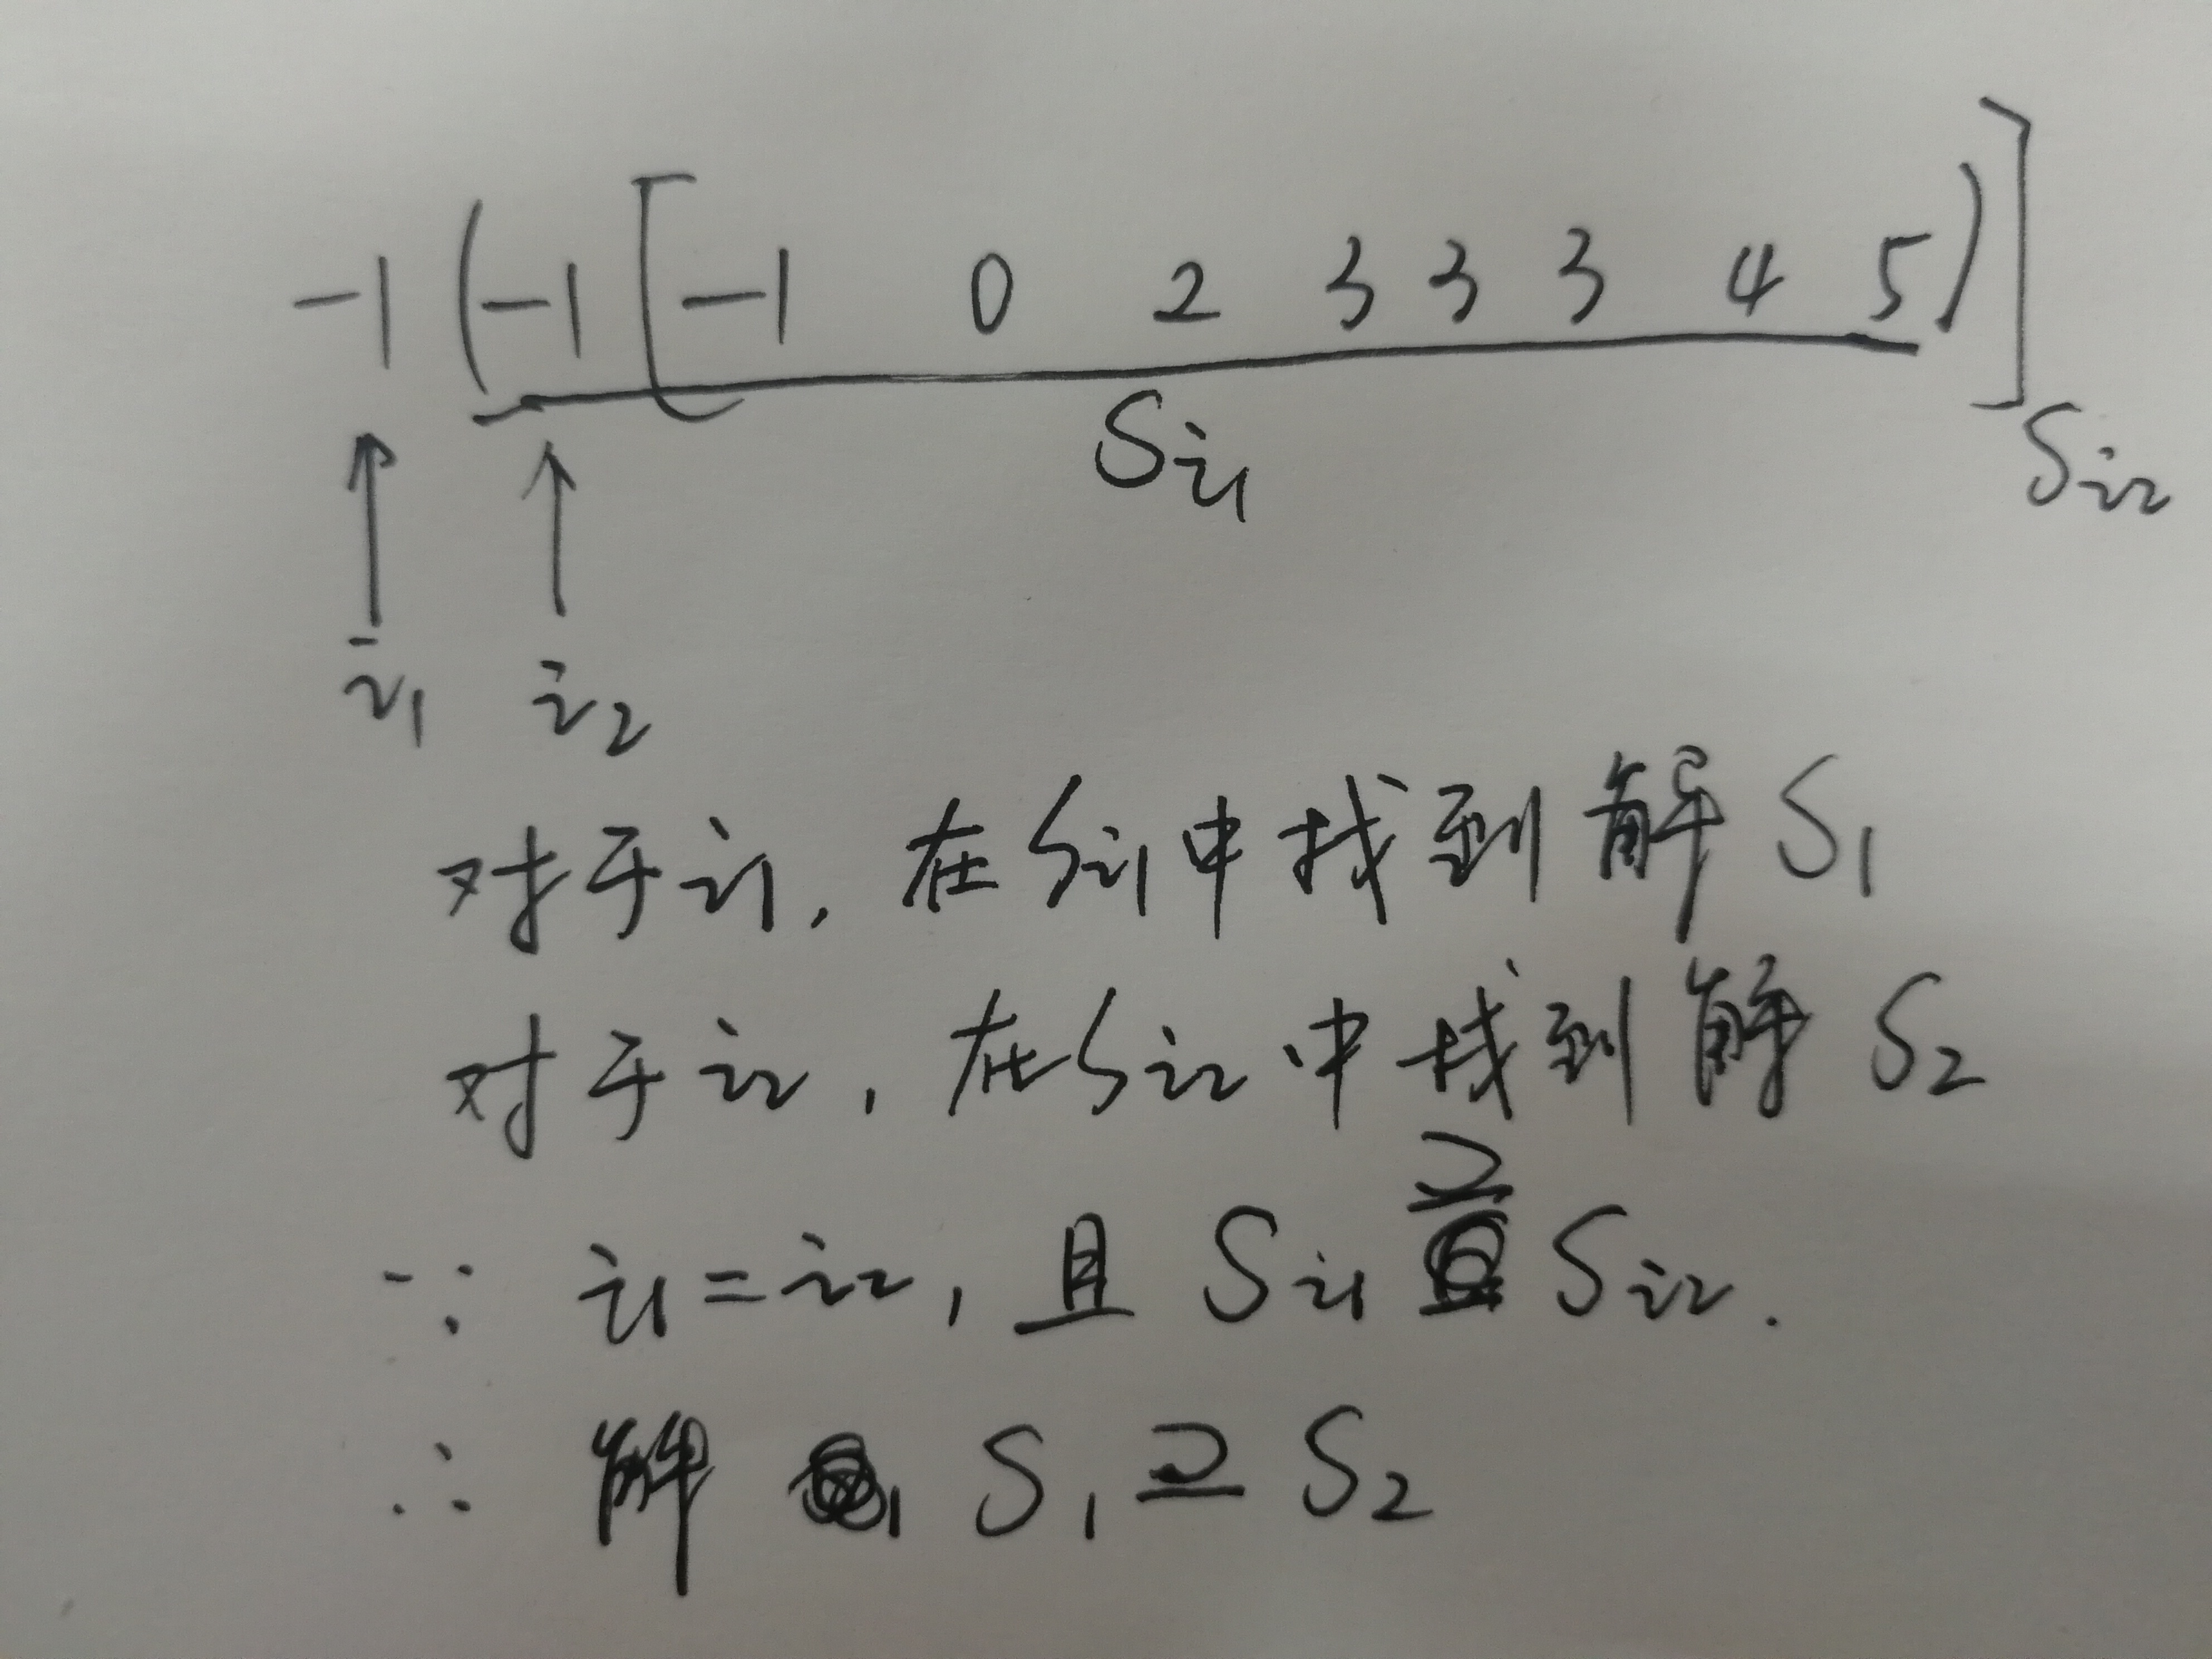 -1 ( -1 [ -1 0 2 3 3 3 4 5 ) ]
Si1 Si2
i1 i2
对于i1, 在Si1中找到解 S1
对于i2, 在Si2中找到解 S2
∵ i1=i2, 且 Si1 ⊇ Si2.
∴ 解 S1 ⊇ S2